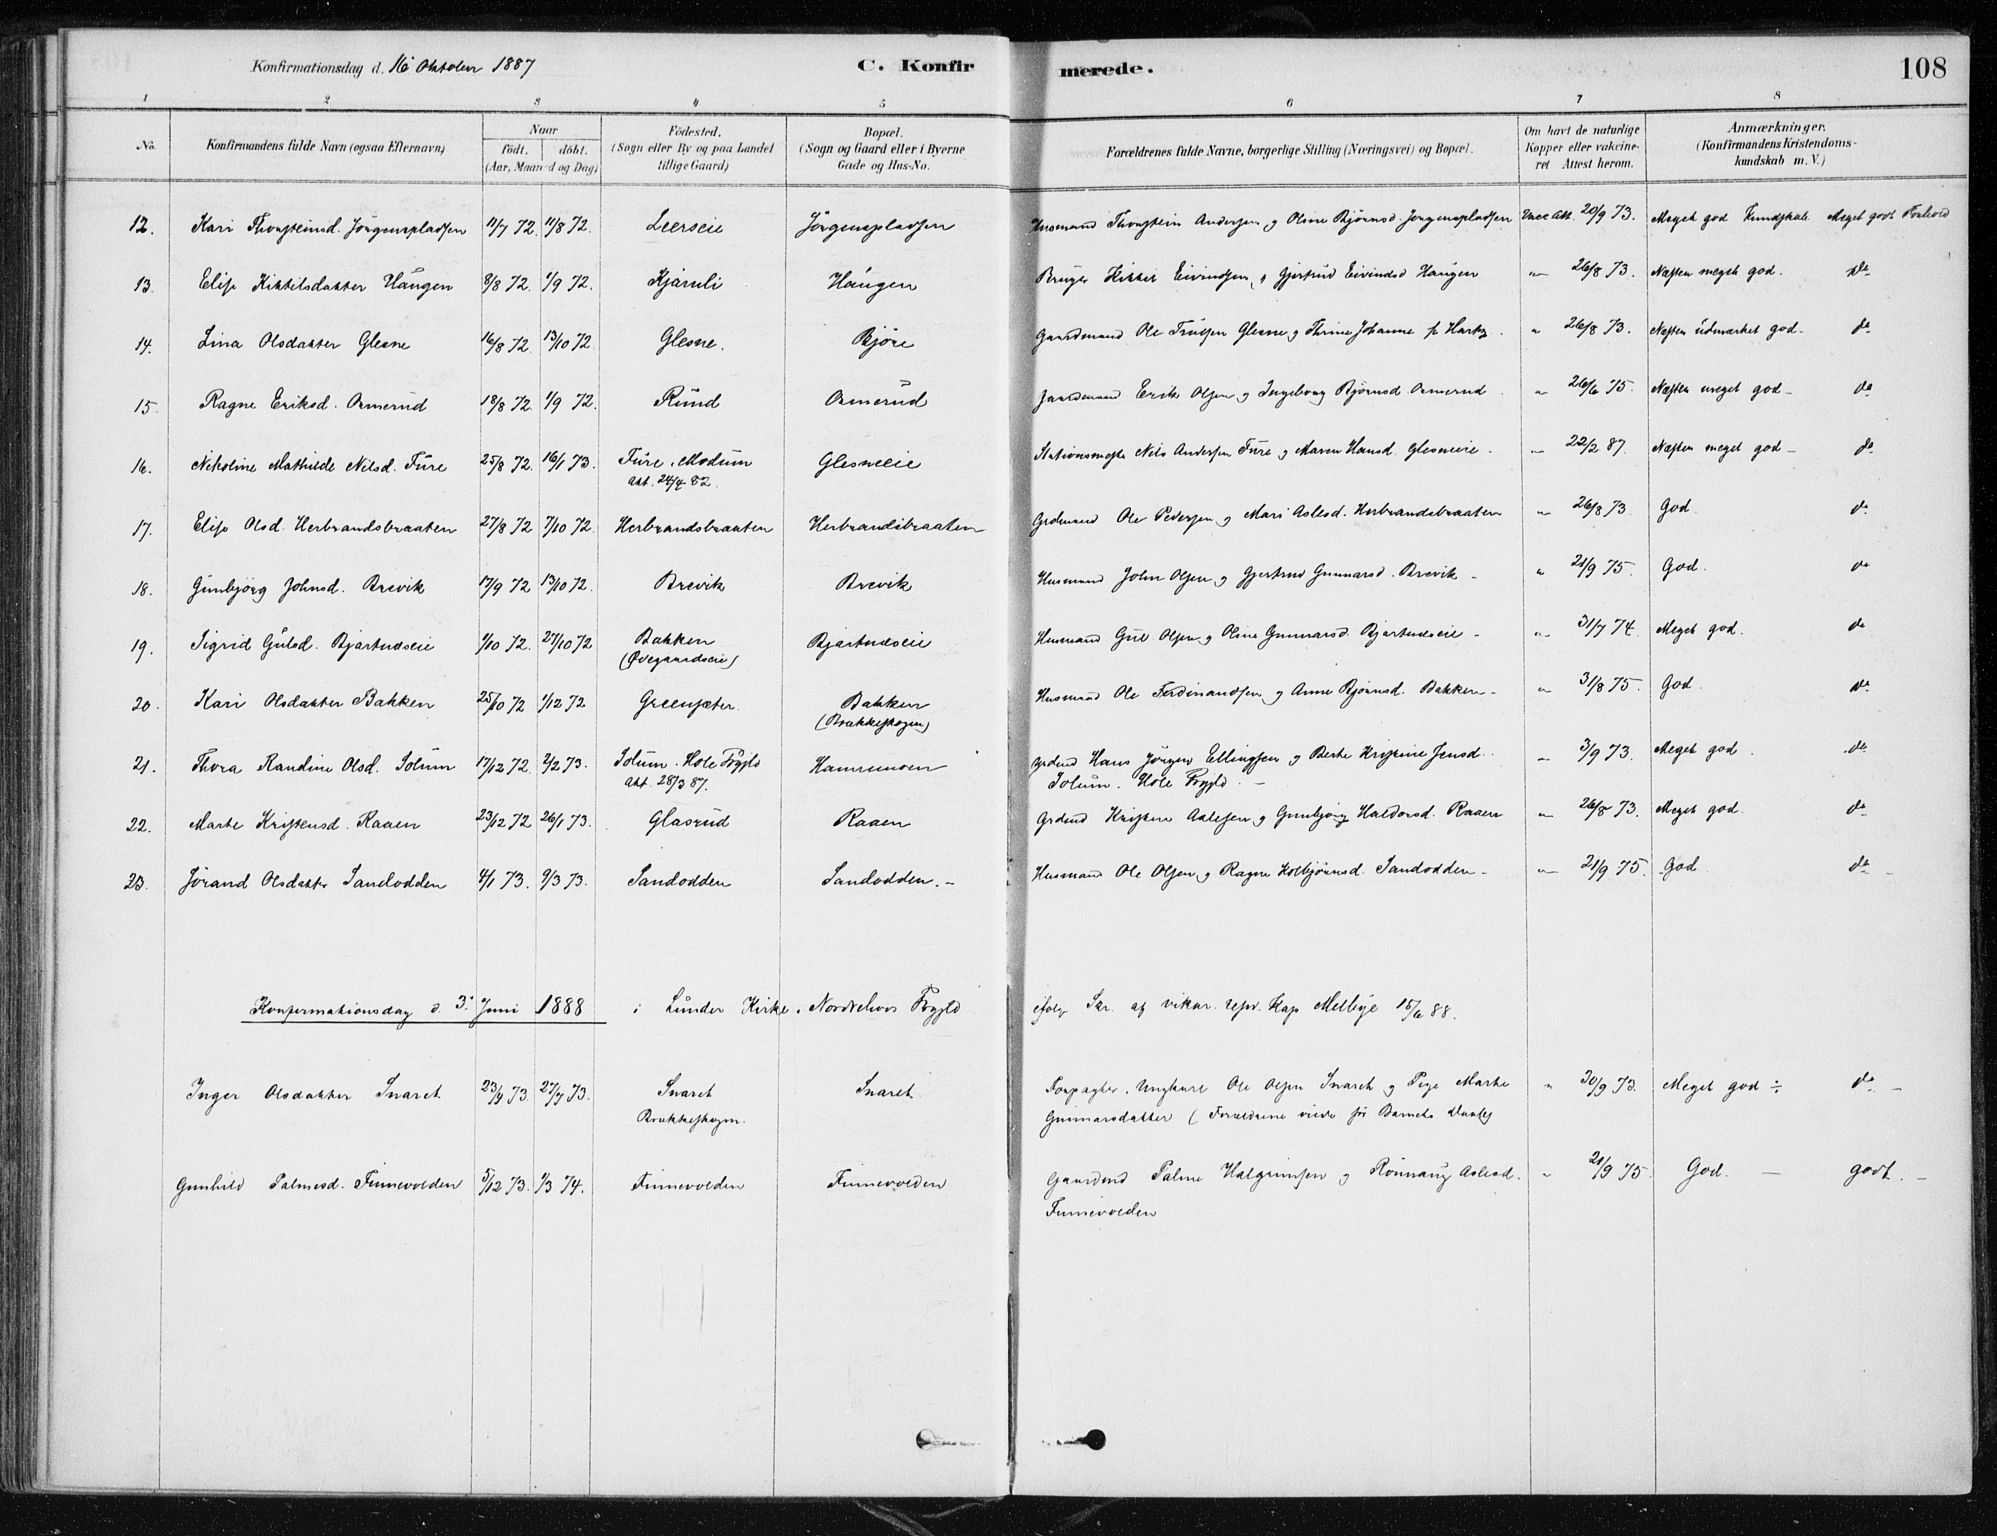 Konfirmationsdag d. 16 Oktober 1887
C. Konfirmerede.
108
1 2 3 4 5 6 7 8
No. Konfirmandens fulde Navn (ogsaa Efternavn) Naar födt. döbt. (Aar, Maaned og Dag) Födested. (Sogn eller By og paa Landet tillige Gaard) Bopæl. (Sogn og Gaard eller i Byerne Gade og Hus-No. Forældrenes fulde Navne, borgerlige Stilling (Næringsvei) og Bopæl. Om havt de naturlige Kopper eller vakcineret Attest herom. Anmærkninger. (Konfirmandens Kristendomskundskab m. V.)
12. Kari Thorsteinsd. Jörgenspladsen 11/7 72. 11/8 72. Leerseie Jörgenspladsen Husmand Thorstein Andersen og Oline Bjørnsd. Jörgenspladsen Vacc Att. 20/9 73. Meget god Kundskab. Meget godt Forhold
13. Elise Kittilsdatter Haugen 8/8 72. 1/9 72. Kjærnli Haugen Bruger Kittil Eivindsen og Gjertrud Eivindsd Haugen " 26/8 73. Næsten meget god. do
14. Lina Olsdatter Glesne 16/8 72. 13/10 72. Glesne. Björe Gaardmand Ole Trulsen Glesne og Thrine Johanne f. Hartz. " 26/8 73. Næsten udmærket god. do
15. Ragne Eriksd. Ormerud 18/8 72. 1/9 72. Rund Ormerud Gaardmand Erik Olsen og Ingeborg Bjørnsd. Ormerud " 26/6 75. Næsten meget god - do
16. Nikoline Mathilde Nilsd. Fure 25/8 72. 16/1 73. Fure, Modum Glesneeie Stationsmester Nils Andersen Fure og Maren Hansd. Glesneeie - " 22/2 87. Næsten meget god - do
Att. 24/4 82.
17. Elise Olsd. Herbrandsbraaten 27/8 72 7/10 72. Herbrandsbraaten Herbrandsbraaten Grdmand Ole Pedersen og Mari Aslesd. Herbrandsbraaten " 26/8 73. God. do
18. Gunbjörg Johnsd. Brevik 17/9 72 13/10 72. Brevik Brevik Husmand John Olsen og Gjertrud Gunnarsd. Brevik - " 21/9 75. God. do
19. Sigrid Gulsd. Bjartnæseie 1/10 72. 27/10 72 Bakken Bjartnæseie Husmand Gul Olsen og Oline Gunnarsd. Bjartnæseie - " 31/7 74. Meget god. do
(Ødegaardseie)
20. Kari Olsdatter Bakken 25/10 72 1/12 72 Greensæter. Bakken Husmand Ole Ferdinandsen og Anne Bjørnsd. Bakken - " 31/8 75. God. do
(Brækkeskogen)
21. Thora Randine Olsd. Solum 17/12 72. 2/2 73. Solum. Hole Prgjld Hamremoen Grdmd Hans Jörgen Ellingsen og Berte Kristine Jensd. " 3/9 73. Meget god. do
Att. 28/3 87. Solum. Hole Prgjld. -
22. Marte Kristensd. Raaen 23/12 72 26/1 73. Glasrud Raaen Grdmd Kristen Aslesen og Gunbjörg Haldorsd. Raaen " 26/8 73. Meget god. do
23. Jørand Olsdatter Sandodden 4/1 73. 9/3 73. Sandodden Sandodden. - Husmand Ole Olsen og Ragne Kolbjørnsd. Sandodden - " 21/9 75. God do
Konfirmationsdag d. 3. Juni 1888 i Lunder Kirke. Norderhovs Prgjld ifølge Skr. af vikar. resid. Kap Mellbye 15/6 88.
Inger Olsdatter Snaret 23/4 73. 27/7 73. Snaret Snaret. Forpagter, Ungkarl Ole Olsen Snaret og Pige Marte " 30/9 73. Meget god ÷ do -
Brækkeskogen. Gunnarsdatter (Forældrene viede før Barnets Daab)
Gunhild Palmesd. Finnevolden 5/12 73. 1/3 74. Finnevolden Finnevolden Gaardmd Palme Halgrimsen og Rönnaug Aslesd. " 21/9 75. God. - godt. -
Finnevolden